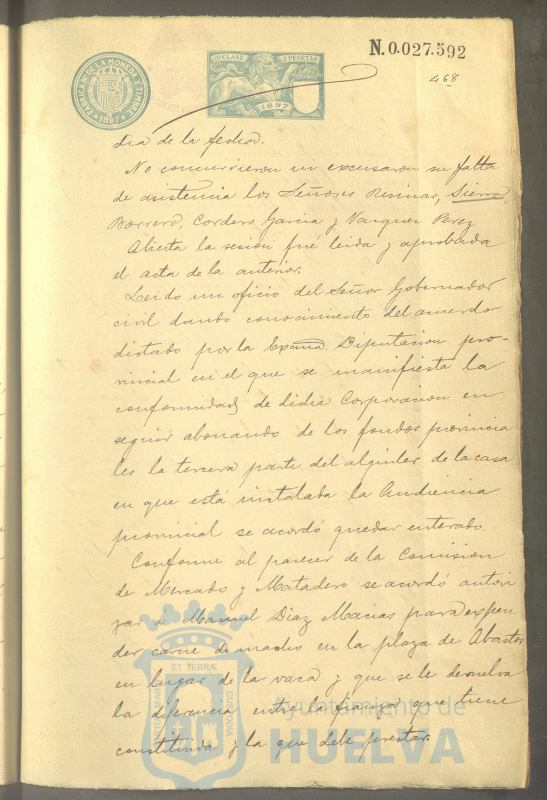 N.0.027.592
468
FABRICA N. DE LA MONEDA Y TIMBRE
1897
12ª CLASE 2 PESETAS
1897
dia de la fecha.
No concurrieron ni excusaron su falta
de asistencia los Señores Resinas, Sierra,
Borrero, Cordero, Garcia y Vazquez Perez
Abierta la sesión fué leida y aprobada
el acta de la anterior.
Leido un oficio del Señor Gobernador
civil dando conocimiento del acuerdo
dictado por la Excma. Diputacion pro-
vincial en el que se manifiesta la
conformidad de dicha Corporacion en
seguir abonando de los fondos provincia
les la tercera parte del alquiler de la casa
en que está instalada la Audiencia
provincial se acordó quedar enterado.
Conforme al parecer de la Comision
de Mercado y Matadero se acordó autori
zar á Manuel Diaz Macias para expen
der carne de macho en la plaza de Abastos
en lugar de la vaca y que se le devuelva
la diferencia entre la fianza que tiene
constituida y la que debe prestar.
ET TERRÆ
PORTUS MARIS
CUSTODIA
Ayuntamiento de
HUELVA